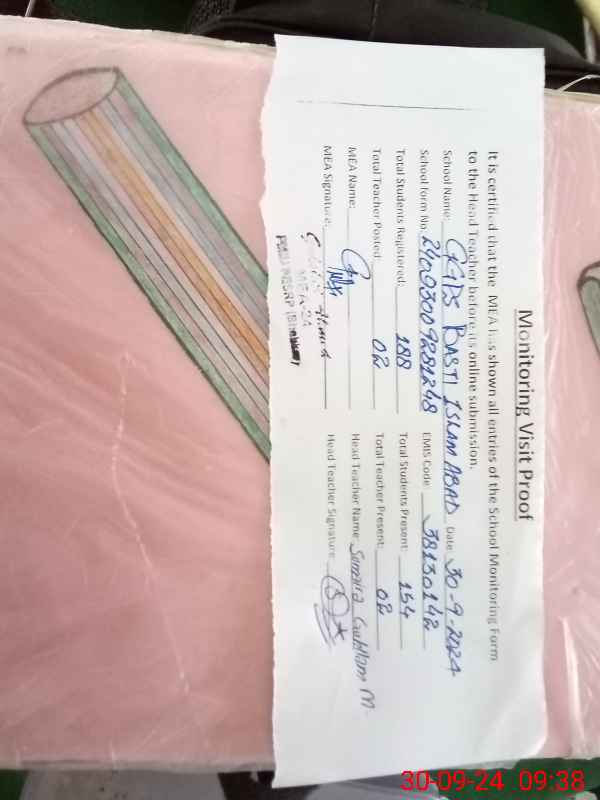 Monitoring Visit Proof
It is certified that the MEA has shown all entries of the School Monitoring Form
to the Head Teacher before its online submission.
School Name: GGPS BASTI ISLAM ABAD Date: 30-9-2024
School form No: 24093009281248 EMIS Code: 38130142
Total Students Registered: 188 Total Students Present: 154
Total Teacher Posted: 02 Total Teacher Present: 02
MEA Name: Head Teacher Name: Sumaira Ghullam M
MEA Signature: Head Teacher Signature (S)
MEA-24
30-09-24 09:38